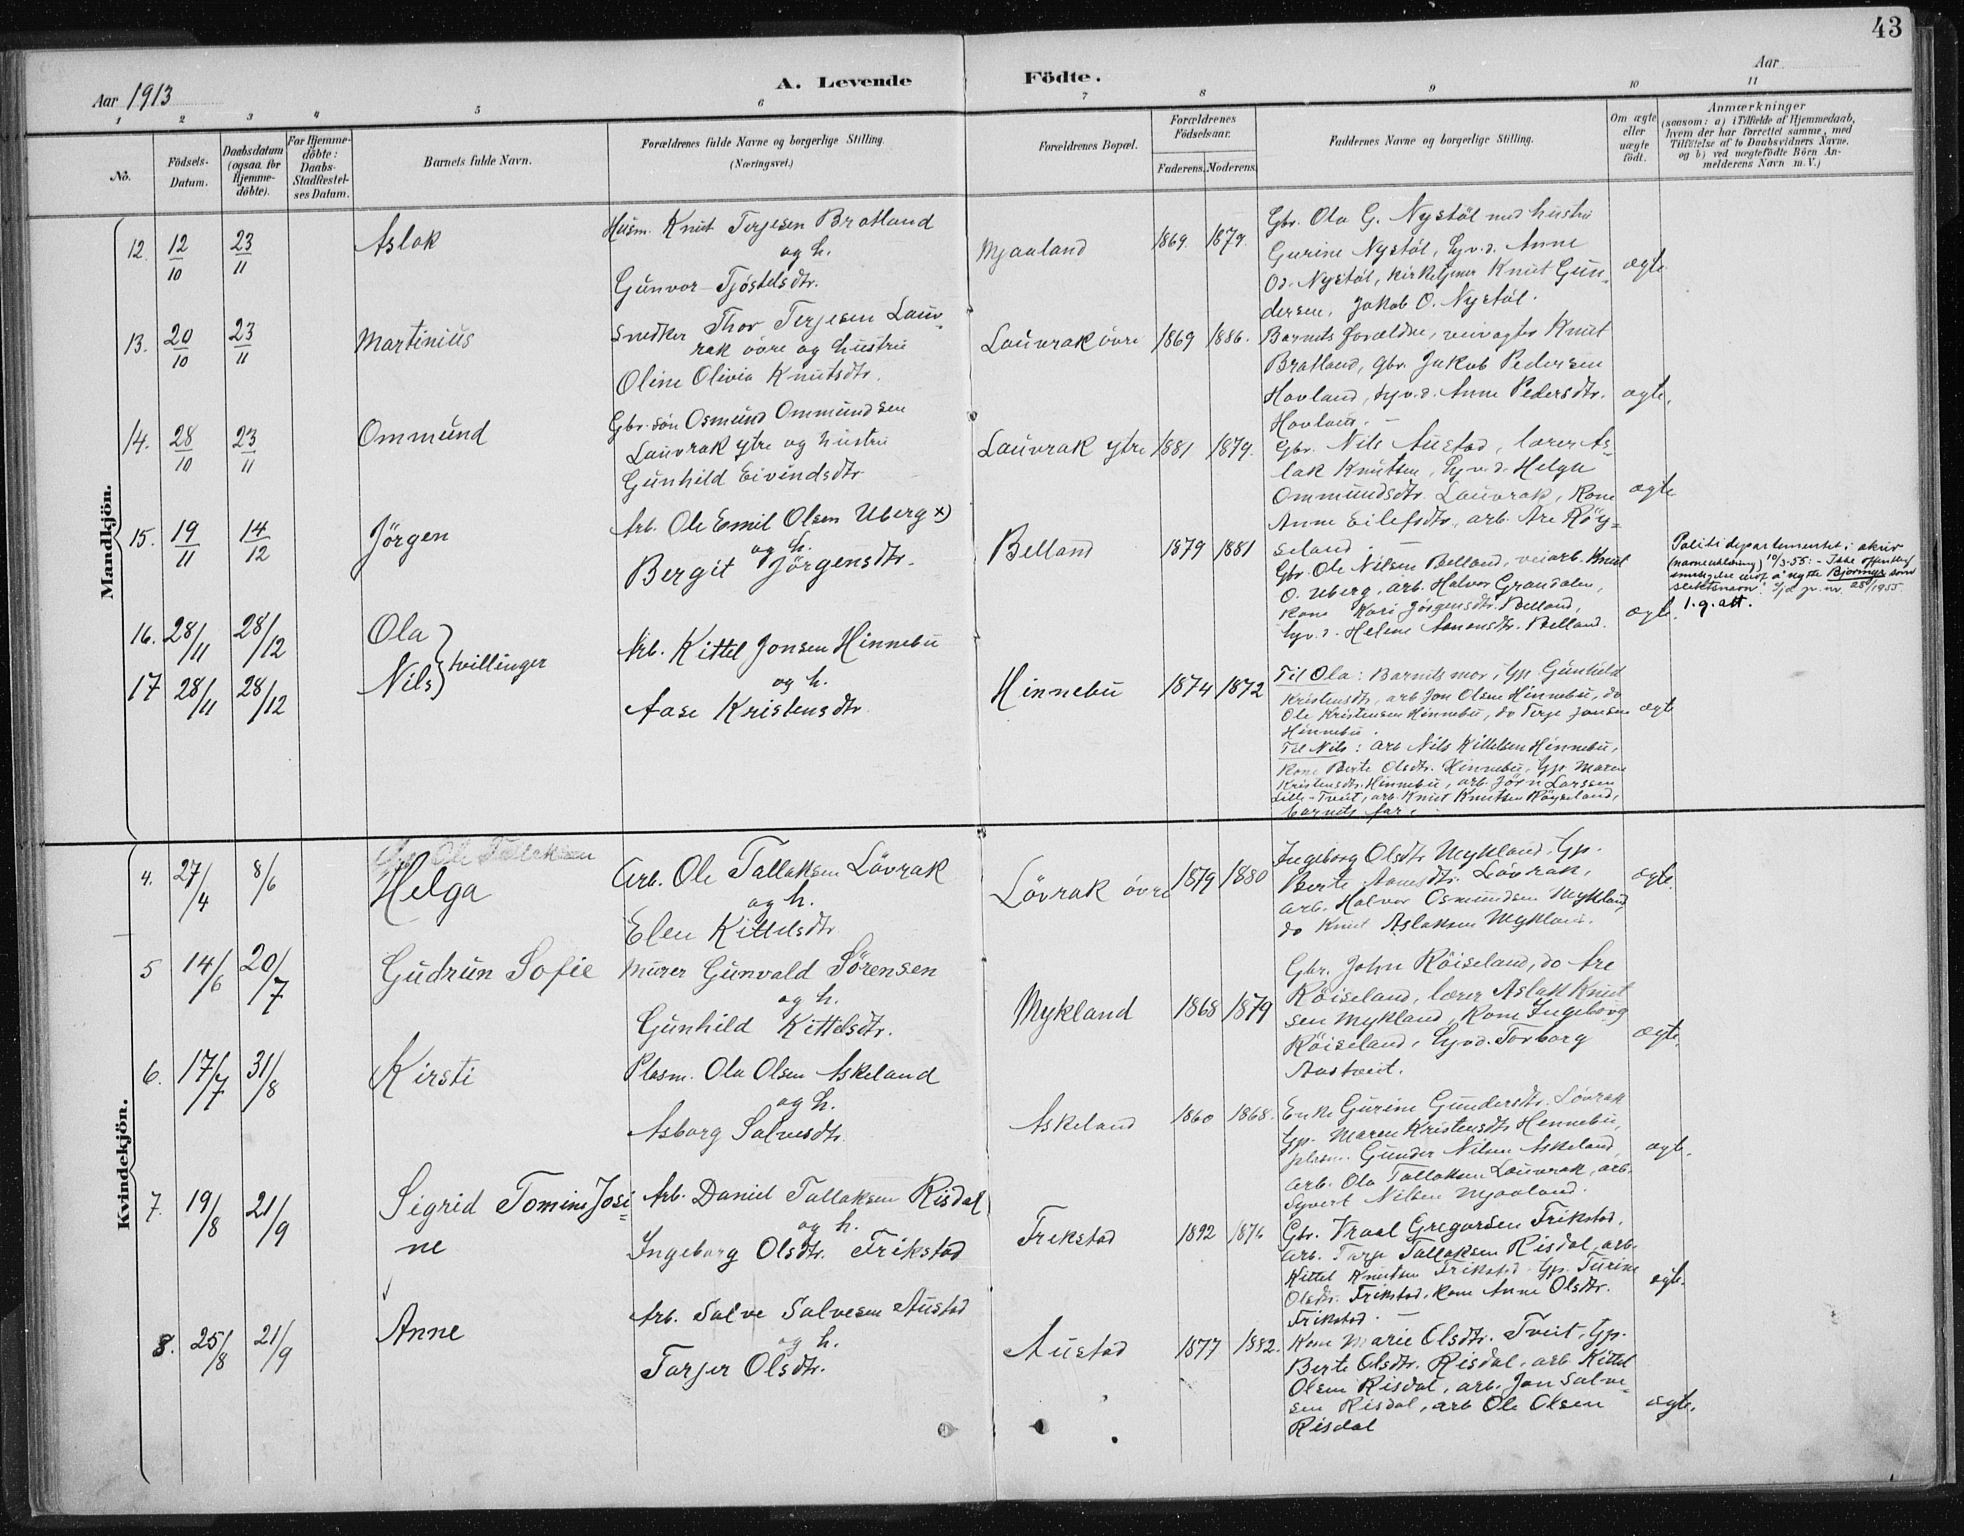 43
Aar 1913
A. Levende Födte.
Aar
1 2 3 4 5 6 7 8 9 10 11
No.
Födsels-Datum.
Daabsdatum (ogsaa for Hjemme-döbte).
For Hjemme-döbte: Daabs-Stadfæstel-ses Datum.
Barnets fulde Navn.
Forældrenes fulde Navne og borgerlige Stilling.
(Næringsvei.)
Forældrenes Bopæl.
Forældrenes Födselsaar.
Faderens. Moderens.
Faddernes Navne og borgerlige Stilling.
Om ægte eller uægte födt.
Anmærkninger
(saasom: a) i Tilfælde af Hjemmedaab, hvem der har forrettet samme, med Tilföielse af to Daabsvidners Navne, og b) ved uægtefödte Börn An-melderens Navn m. V.)
Mandkjön.
12. 12/10 23/11 Aslak
Husm. Knut Terjesen Bratland
og h.
Gunvor Tjöstelsdtr.
Mjaaland 1869. 1879.
Gbr. Ola G. Nystöl med hustru
Gurine Nystöl, Anne
Od. Nystöl, kirketjener Knut Gun-
dersen, Jakob O. Nystöl.
ægte
13. 20/10 23/11 Martinius
Snedker Thor Terjesen Lauv-
rak övre og hustru
Oline Olivia Knutsdtr.
Lauvrak övre 1869 1886.
Barnets forældre, veivogter Knut
Bratland, Gbr. Jakob Pedersen
Hovland, Anne Pedersdtr.
Hovland. -
ægte.
14. 28/10 23/11 Ommund
Gbr. sön Osmund Ommundsen
Lauvrak ytre og hustru
Gunhild Eivindsdtr
Lauvrak ytre 1881 1879.
Gbr. Nils Austad, lærer As-
lak Knutsen, Helga
Ommundsdtr. Lauvrak, Kone
Anne Eilefsdtr., arb. Are Röy-
seland. -
ægte
15. 19/11 14/12 Jörgen
Arb. Ole Emil Olsen Uberg x)
og h.
Bergit Jörgensdtr.
Belland 1879 1881
Gbr. Ole Nilsen Belland, veiarb. Knut
O. Uberg, arb. Halvor Grandalen,
Kone Kari Jörgensdtr. Belland,
Helene Aanensdtr. Belland.
ægte
Politidepartementet i skriv
10/3-55: - Ikke
å nytte Bjorninge som
slektsnavn.
1. g. att.
16. 28/11 28/12 Ola
17 28/11 28/12 Nils
tvillinger
Arb. Kittel Jonsen Hinnebu
og h.
Aase Kristensdtr
Hinnebu 1874 1872
Til Ola: Barnets mor, Gp. Gunhild
Kristensdtr, arb Jon Olsen Hinnebu, do
Ole Kristensen Hinnebu, do Terje Jonsen
Hinnebu.
Til Nils: arb Nils Kittelsen Hinnebu,
Kone Berte Olsdtr. Hinnebu, Gp. Maren
Kristensdtr. Hinnebu, arb. Jörn Larssen
Lille-Tveit, arb. Knut Knutsen Röyseland,
barnets far.
ægte
Kvindekjön.
4. 27/4 8/6 Helga
Arb. Ole Tallaksen Lövrak
og h.
Elen Kittelsdtr.
Lövrak övre 1879 1880
Ingeborg Olsdtr Mykland. Gp.
Berte Aanesdtr. Lövrak,
arb. Halvor Osmundsen Mykland,
do Knut Aslaksen Mykland.
ægte.
5 14/6 20/7 Gudrun Sofie
Murer Gunvald Sörensen
og h.
Gunhild Kittelsdtr.
Mykland 1868 1879
Gbr. John Röiseland, do Are
Röiseland, lærer Aslak Knut
sen Mykland, Kone Ingeborg
Röiseland, Torborg
Austveit.
ægte.
6. 17/7 31/8 Kirsti
Plasm. Ola Olsen Askeland
og h.
Asborg Salvesdtr.
Askeland 1860 1868.
Enke Gurine Gundersdtr. Lövrak
Gp. Maren Kristensdtr Hinnebu,
plasm. Gunder Nilsen Askeland,
arb. Ola Tallaksen Lauvrak, arb.
Syvert Nilsen Mjaaland.
ægte.
7. 19/8 21/9 Sigrid Tomine Josi-
ne
Arb. Daniel Tallaksen Risdal
og h.
Ingeborg Olsdtr. Frikstad
Frikstad 1892 1876
Gbr. Vraal Gregorsen Frikstad,
arb. Terje Tallaksen Risdal, arb.
Kittel Knutsen Frikstad. Gp. Turine
Olsdtr. Frikstad, Kone Anne Olsdtr.
Frikstad. -
ægte.
8. 25/8 21/9 Anne
Arb. Salve Salvesen Austad
og h.
Tarjer Olsdtr.
Austad 1877 1882.
Kone Marie Olsdtr. Tveit, Gp.
Berte Olsdtr. Risdal, arb Kittel
Olsen Risdal, arb. Jon Salve-
sen Risdal, arb Ole Olsen
Risdal
ægte.